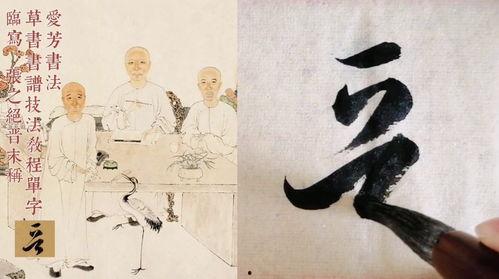 愛芳書法
草書書譜技法教程單字
臨寫張之絕晉末稱